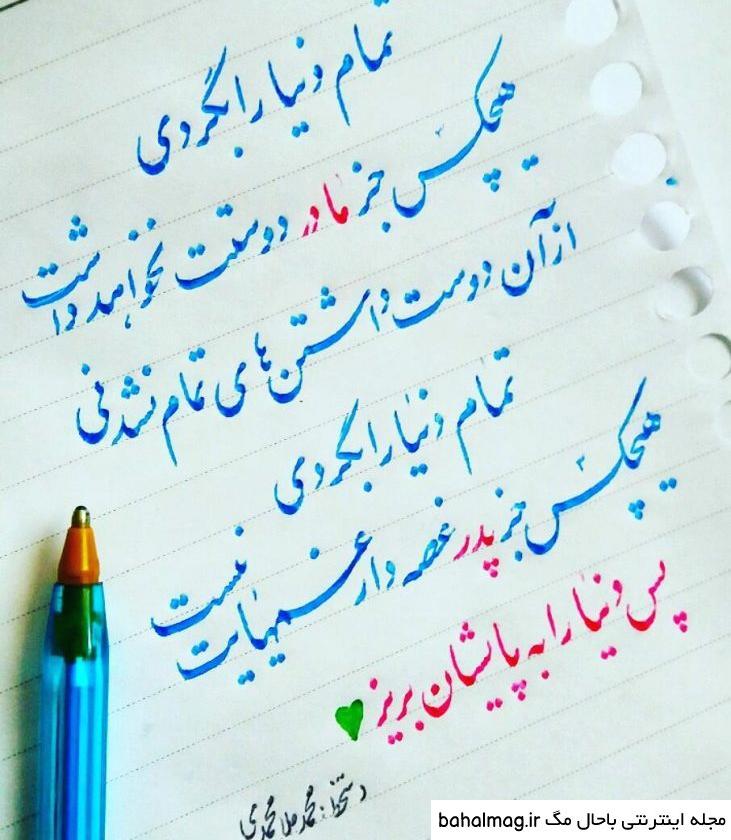 تمام دنیا را بگردی
هیچکس جز مادر دوستت نخواهد داشت
از آن دوست داشتن های تمام نشدنی
تمام دنیا را بگردی
هیچکس جز پدر غصه دار غمهایت نیست
پس دنیا را به پایشان بریز
دستخط: محمد ملامحمدی
مجله اینترنتی باحال مگ bahalmag.ir